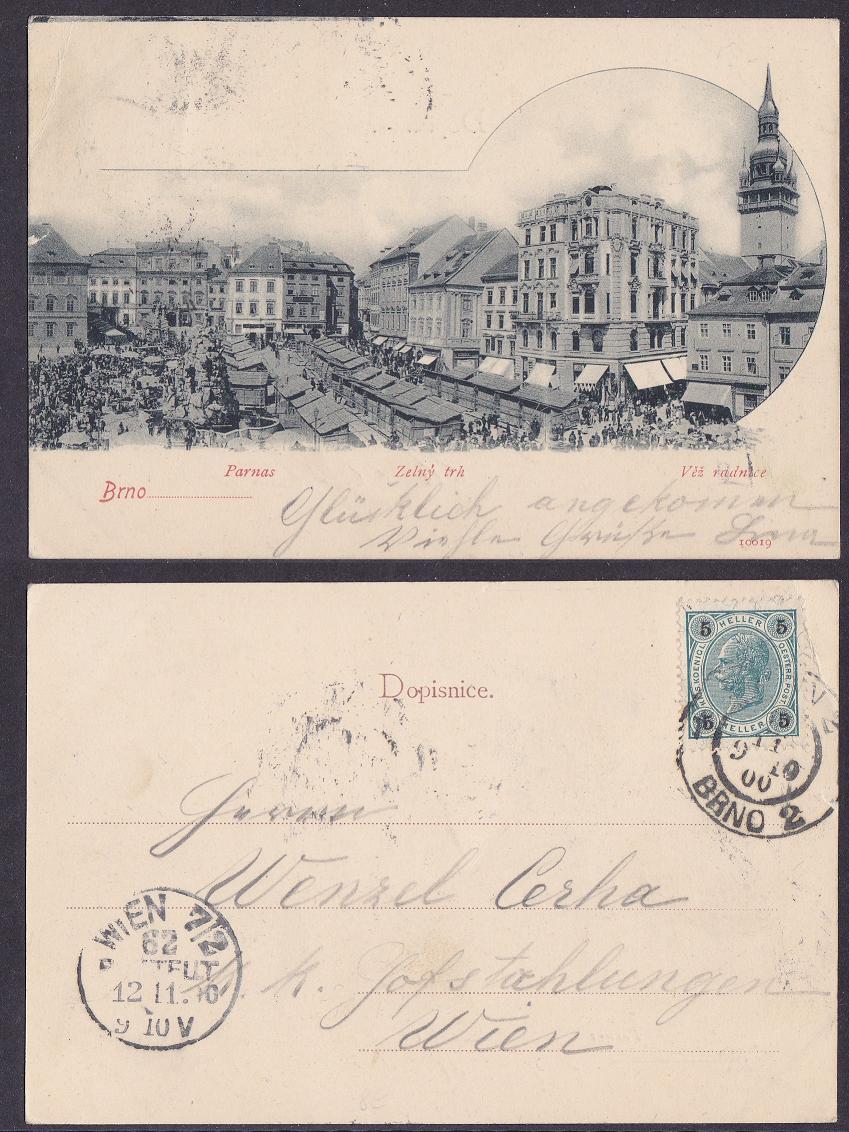 Parnas
Zelný trh
Věž radnice
Brno
Glücklich angekommen
Viehle Grüße
10019
Dopisnice.
5 HELLER 5
KAIS. KOENIGL. OESTERR. POST.
5 HELLER 5
11
9 10
00
BRNO 2
Herrn
Wenzel Cerha
k. k. Hofstahlungen
Wien
WIEN 7/2
62
12.11.
9 10 V